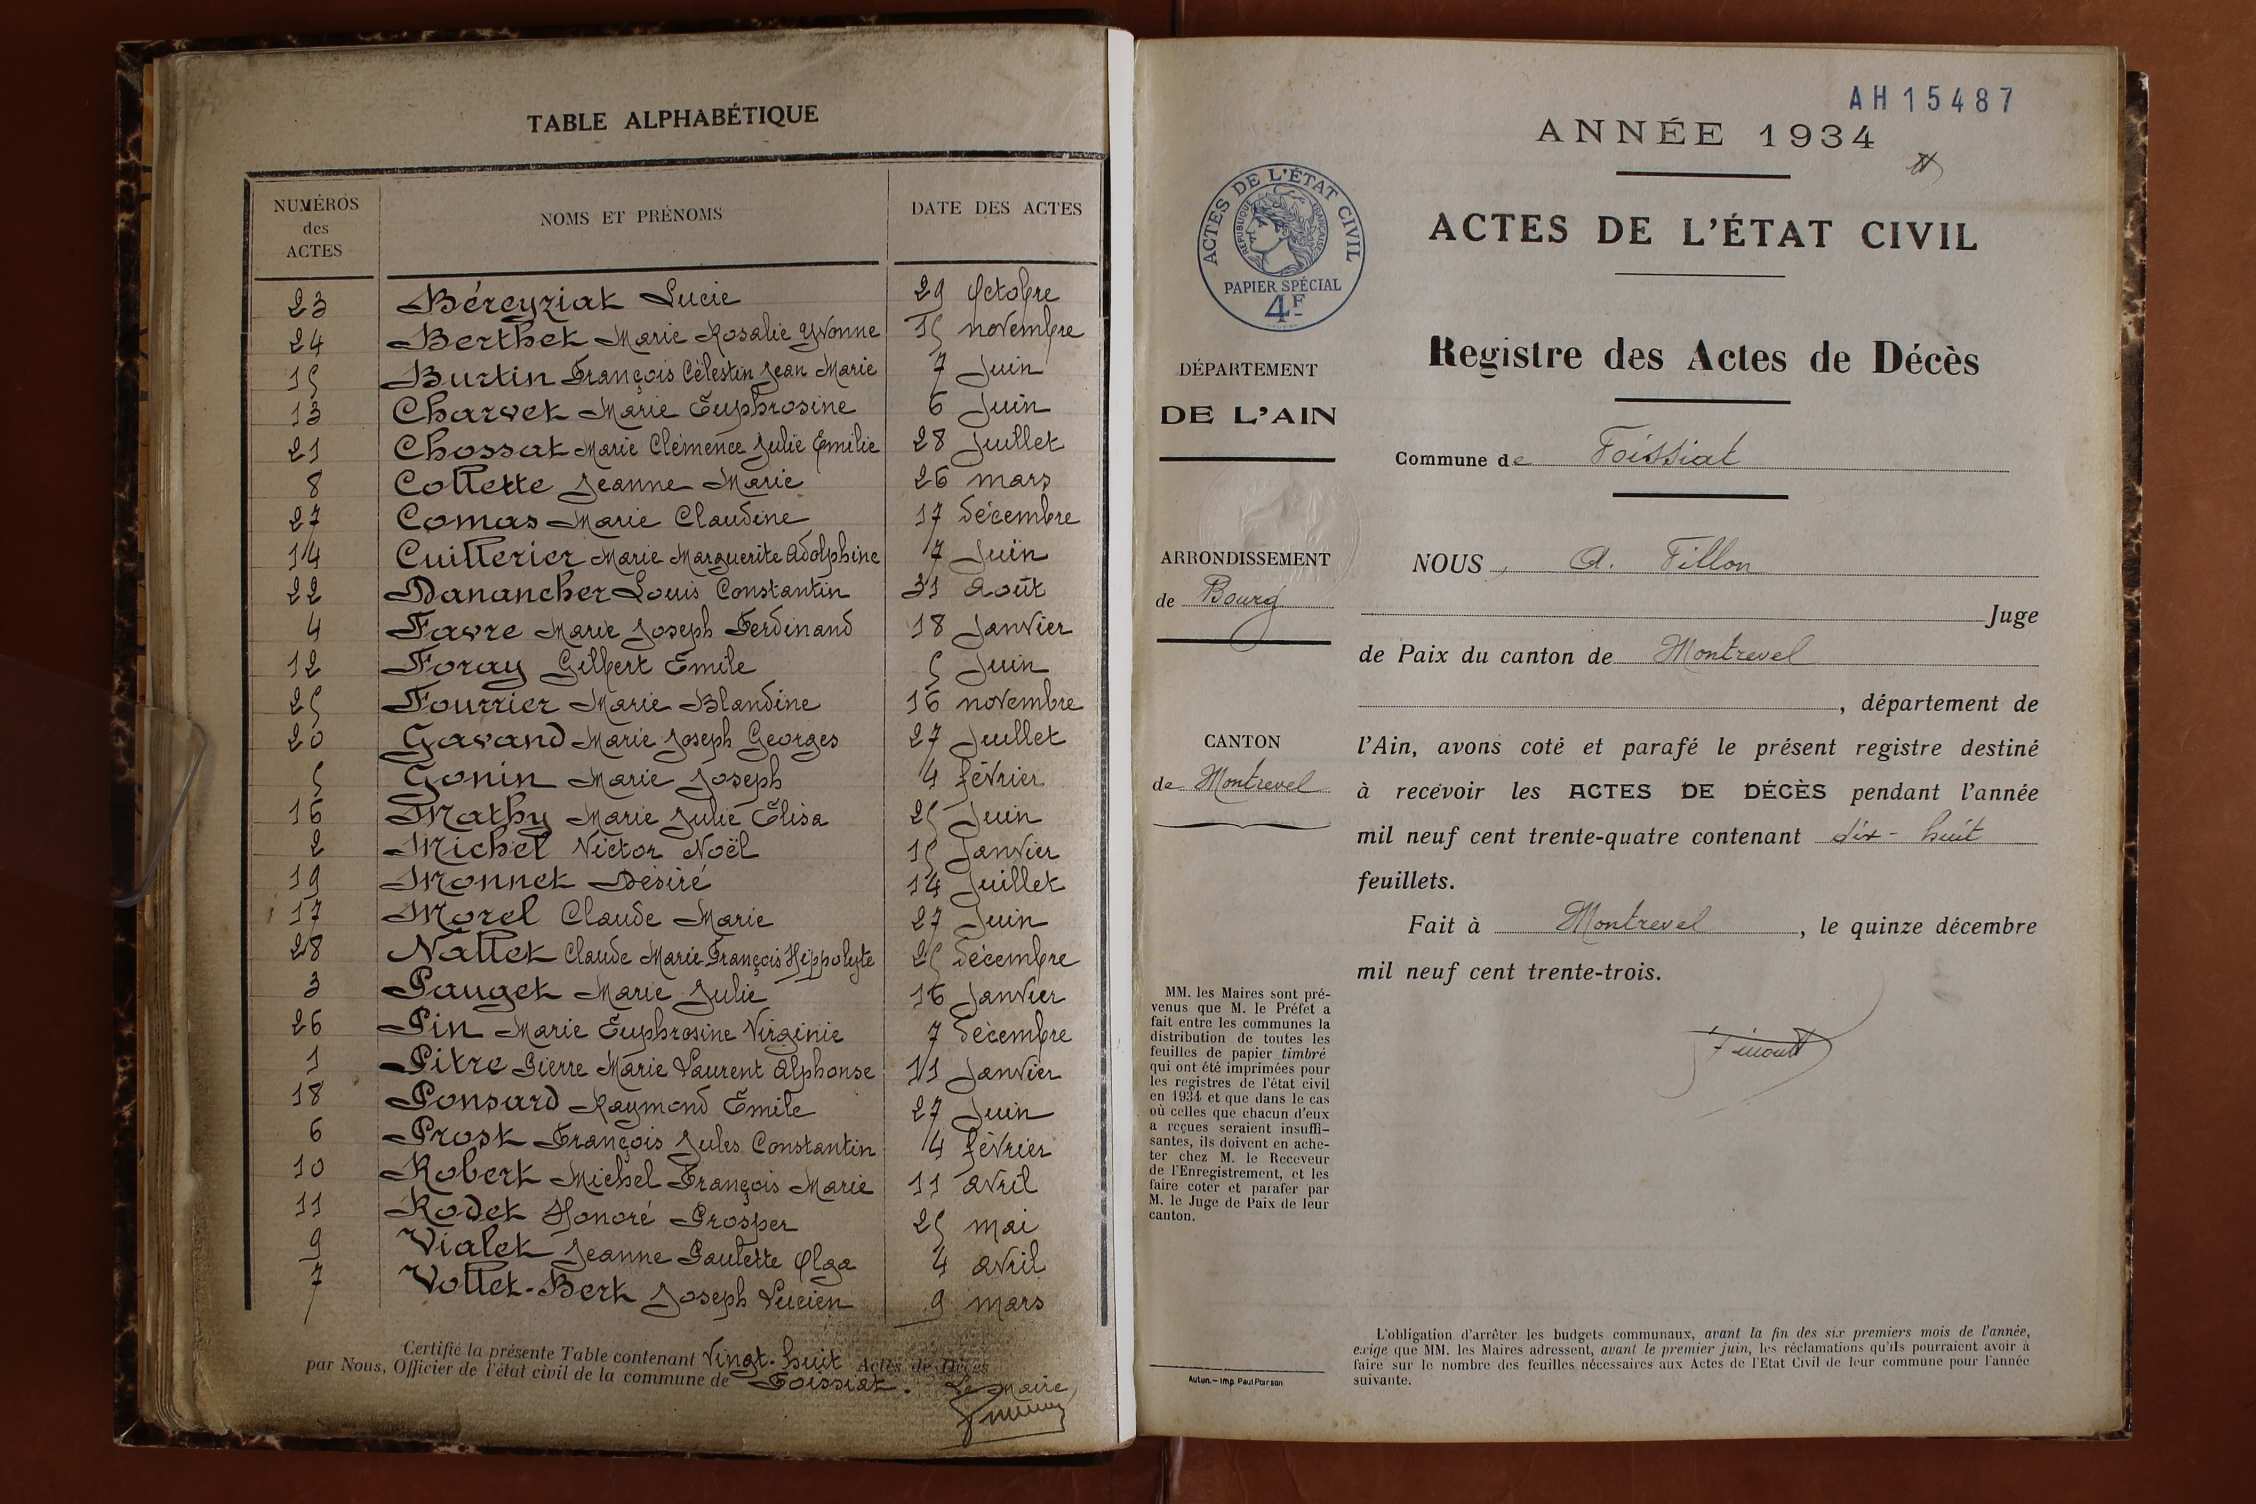 TABLE ALPHABÉTIQUE
NUMÉROS des ACTES NOMS ET PRÉNOMS DATE DES ACTES
23 Béreyziat Lucie 29 Octobre
24 Berthet Marie Rosalie Yvonne 15 novembre
15 Burtin François Célestin Jean Marie 7 Juin
13 Charvet Marie Euphrosine 6 Juin
21 Chossat Marie Clémence Julie Emilie 28 Juillet
8 Collette Jeanne Marie 26 mars
27 Comas Marie Claudine 17 décembre
14 Cuillerier Marie Marguerite Adolphine 7 Juin
22 Danancher Louis Constantin 31 Août
4 Favre Marie Joseph Ferdinand 18 Janvier
12 Foray Gilbert Emile 5 Juin
25 Fourrier Marie Blandine 16 novembre
20 Gavand Marie Joseph Georges 27 Juillet
5 Gonin Marie Joseph 4 février
16 Mathy Marie Julie Elisa 25 Juin
2 Michel Victor Noël 15 Janvier
19 Monnet Désiré 14 Juillet
17 Morel Claude Marie 27 Juin
28 Nallet Claude Marie François Hippolyte 25 décembre
3 Pauget Marie Julie 16 Janvier
26 Pin Marie Euphrosine Virginie 7 décembre
1 Pitre Pierre Marie Laurent Alphonse 11 Janvier
18 Ponsard Raymond Emile 27 Juin
6 Prost François Jules Constantin 4 février
10 Robert Michel François Marie 11 avril
11 Rodet Honoré Prosper 25 mai
9 Vialet Jeanne Paulette Olga 4 avril
7 Vollet-Bert Joseph Lucien 9 mars
Certifié la présente Table contenant Vingt-huit Actes de Décès
par Nous, Officier de l'état civil de la commune de Foissiat.
Le Maire,
AH15487
ANNÉE 1934
ACTES DE L'ÉTAT CIVIL
RÉPUBLIQUE FRANÇAISE
PAPIER SPÉCIAL
4F
ACTES DE L'ÉTAT CIVIL
Registre des Actes de Décès
DÉPARTEMENT
DE L'AIN
Commune de Foissiat
ARRONDISSEMENT
de Bourg
CANTON
de Montrevel
NOUS, A. Tillon
Juge
de Paix du canton de Montrevel
, département de
l'Ain, avons coté et parafé le présent registre destiné
à recevoir les ACTES DE DÉCÈS pendant l'année
mil neuf cent trente-quatre contenant dix-huit
feuillets.
Fait à Montrevel, le quinze décembre
mil neuf cent trente-trois.
MM. les Maires sont pré-
venus que M. le Préfet a
fait entre les communes la
distribution de toutes les
feuilles de papier timbré
qui ont été imprimées pour
les registres de l'état civil
en 1934 et que dans le cas
où celles que chacun d'eux
a reçues seraient insuffi-
santes, ils doivent en ache-
ter chez M. le Receveur
de l'Enregistrement, et les
faire coter et parafer par
M. le Juge de Paix de leur
canton.
Autun. – Imp. Paul Poirson
L'obligation d'arrêter les budgets communaux, avant la fin des six premiers mois de l'année,
exige que MM. les Maires adressent, avant le premier juin, les réclamations qu'ils pourraient avoir à
faire sur le nombre des feuilles nécessaires aux Actes de l'Etat Civil de leur commune pour l'année
suivante.